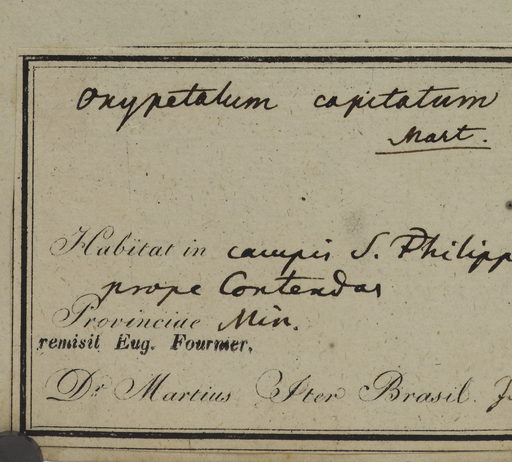 Oxypetalum capitatum
Mart.
Habitat in campis S. Philipp
prope Contendas
Provinciae Min.
remisit Eug. Fournier.
Dr Martius Iter Brasil.